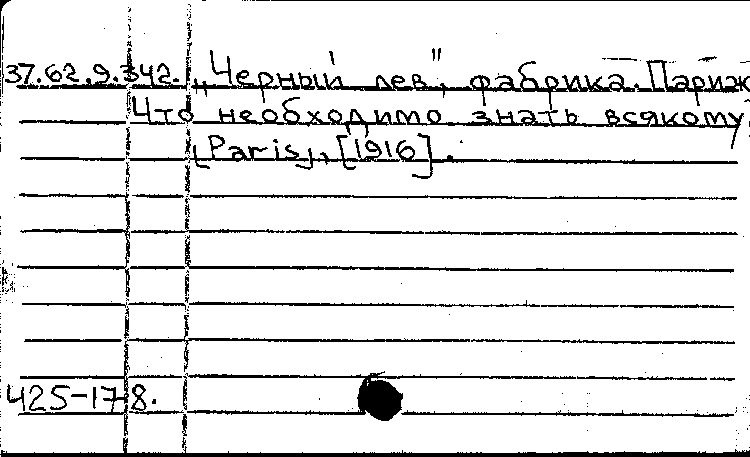 37.62.9.342. „Черный лев", фабрика. Париж
Что необходимо знать всякому.
[Paris], [1916].
425-17-8.